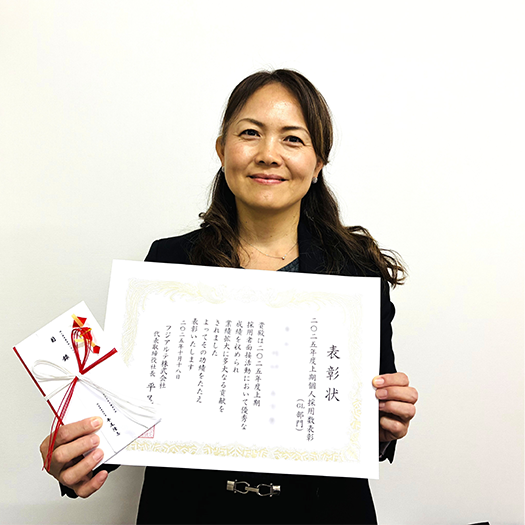 表彰状
二〇二五年度上期個人採用数表彰
（GL部門）
貴殿は二〇二五年度上期
採用者面接活動において優秀な
成績を収められ
業績拡大に多大なる貢献を
されました
よってその功績をたたえ
表彰いたします
二〇二五年十月十八日
フジアルテ株式会社
代表取締役社長 平
目録